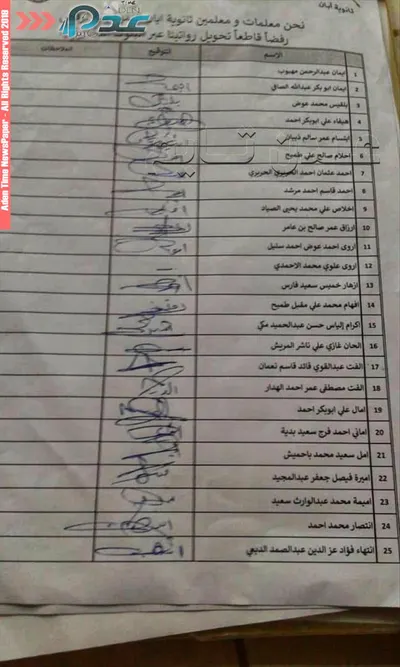 ثانوية ابان
نحن معلمات و معلمين ثانوية ابان
رفضاً قاطعاً تحويل رواتبنا عبر
الاسم التوقيع الملاحظات
1 ايمان عبدالرحمن مهيوب
2 ايمان ابو بكر عبدالله الصافي
3 بلقيس محمد عوض
4 هيفاء علي ابوبكر احمد
5 ابتسام عمر سالم ذيبان
6 احلام صالح علي طميح
7 احمد عثمان احمد الحريري
8 احمد قاسم احمد مرشد
9 اخلاص علي محمد يحيى الصياد
10 ارزاق عمر صالح بن عامر
11 اروى احمد عوض احمد سنيل
12 اروى علوي محمد الاحمدي
13 ازهار خميس سعيد فارس
14 افهام محمد علي مقبل طميح
15 اكرام إلياس حسن عبدالحميد مكي
16 الحان غازي علي ناشر المريش
17 الفت عبدالقوي قائد قاسم نعمان
18 الفت مصطفى عمر احمد الهدار
19 امال علي ابوبكر احمد
20 اماني احمد فرج سعيد بدية
21 امل سعيد محمد باحميش
22 اميرة فيصل جعفر عبدالمجيد
23 اميمة محمد عبدالوارث سعيد
24 انتصار محمد احمد
25 انتهاء فؤاد عز الدين عبدالصمد الدبعي
عدن تايم
Aden Time NewsPaper - All Rights Reserved 2018